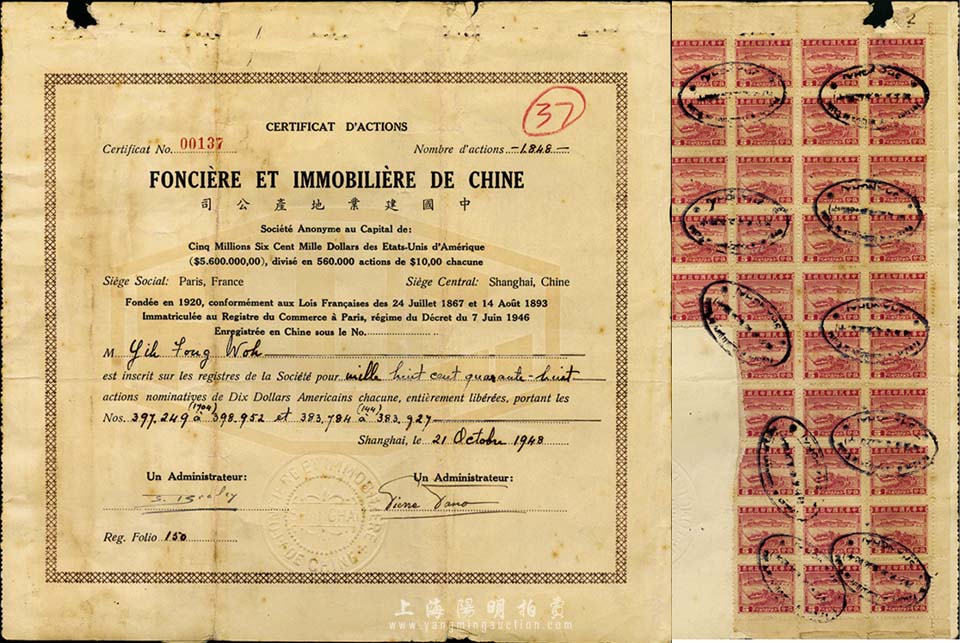 37
CERTIFICAT D'ACTIONS
Certificat No. 00137 Nombre d'actions -1.848-
FONCIÈRE ET IMMOBILIÈRE DE CHINE
司公產地業建國中
Société Anonyme au Capital de:
Cinq Millions Six Cent Mille Dollars des Etats-Unis d'Amérique
($5.600.000,00), divisé en 560.000 actions de $10,00 chacune
Siège Social: Paris, France Siège Central: Shanghai, Chine
Fondée en 1920, conformément aux Lois Françaises des 24 Juillet 1867 et 14 Août 1893
Immatriculée au Registre du Commerce à Paris, régime du Décret du 7 Juin 1946
Enregistrée en Chine sous le No.
M Yih Tong Woh
est inscrit sur les registres de la Société pour mille huit cent quarante-huit
actions nominatives de Dix Dollars Americains chacune, entièrement libérées, portant les
(1704) (144)
Nos. 397.249 à 398.952 et 383.784 à 383.927
Shanghai, le 21 Octobre 1948
Un Administrateur: Un Administrateur:
Reg. Folio 150
2
上海陽明拍賣
www.yangmingauction.com